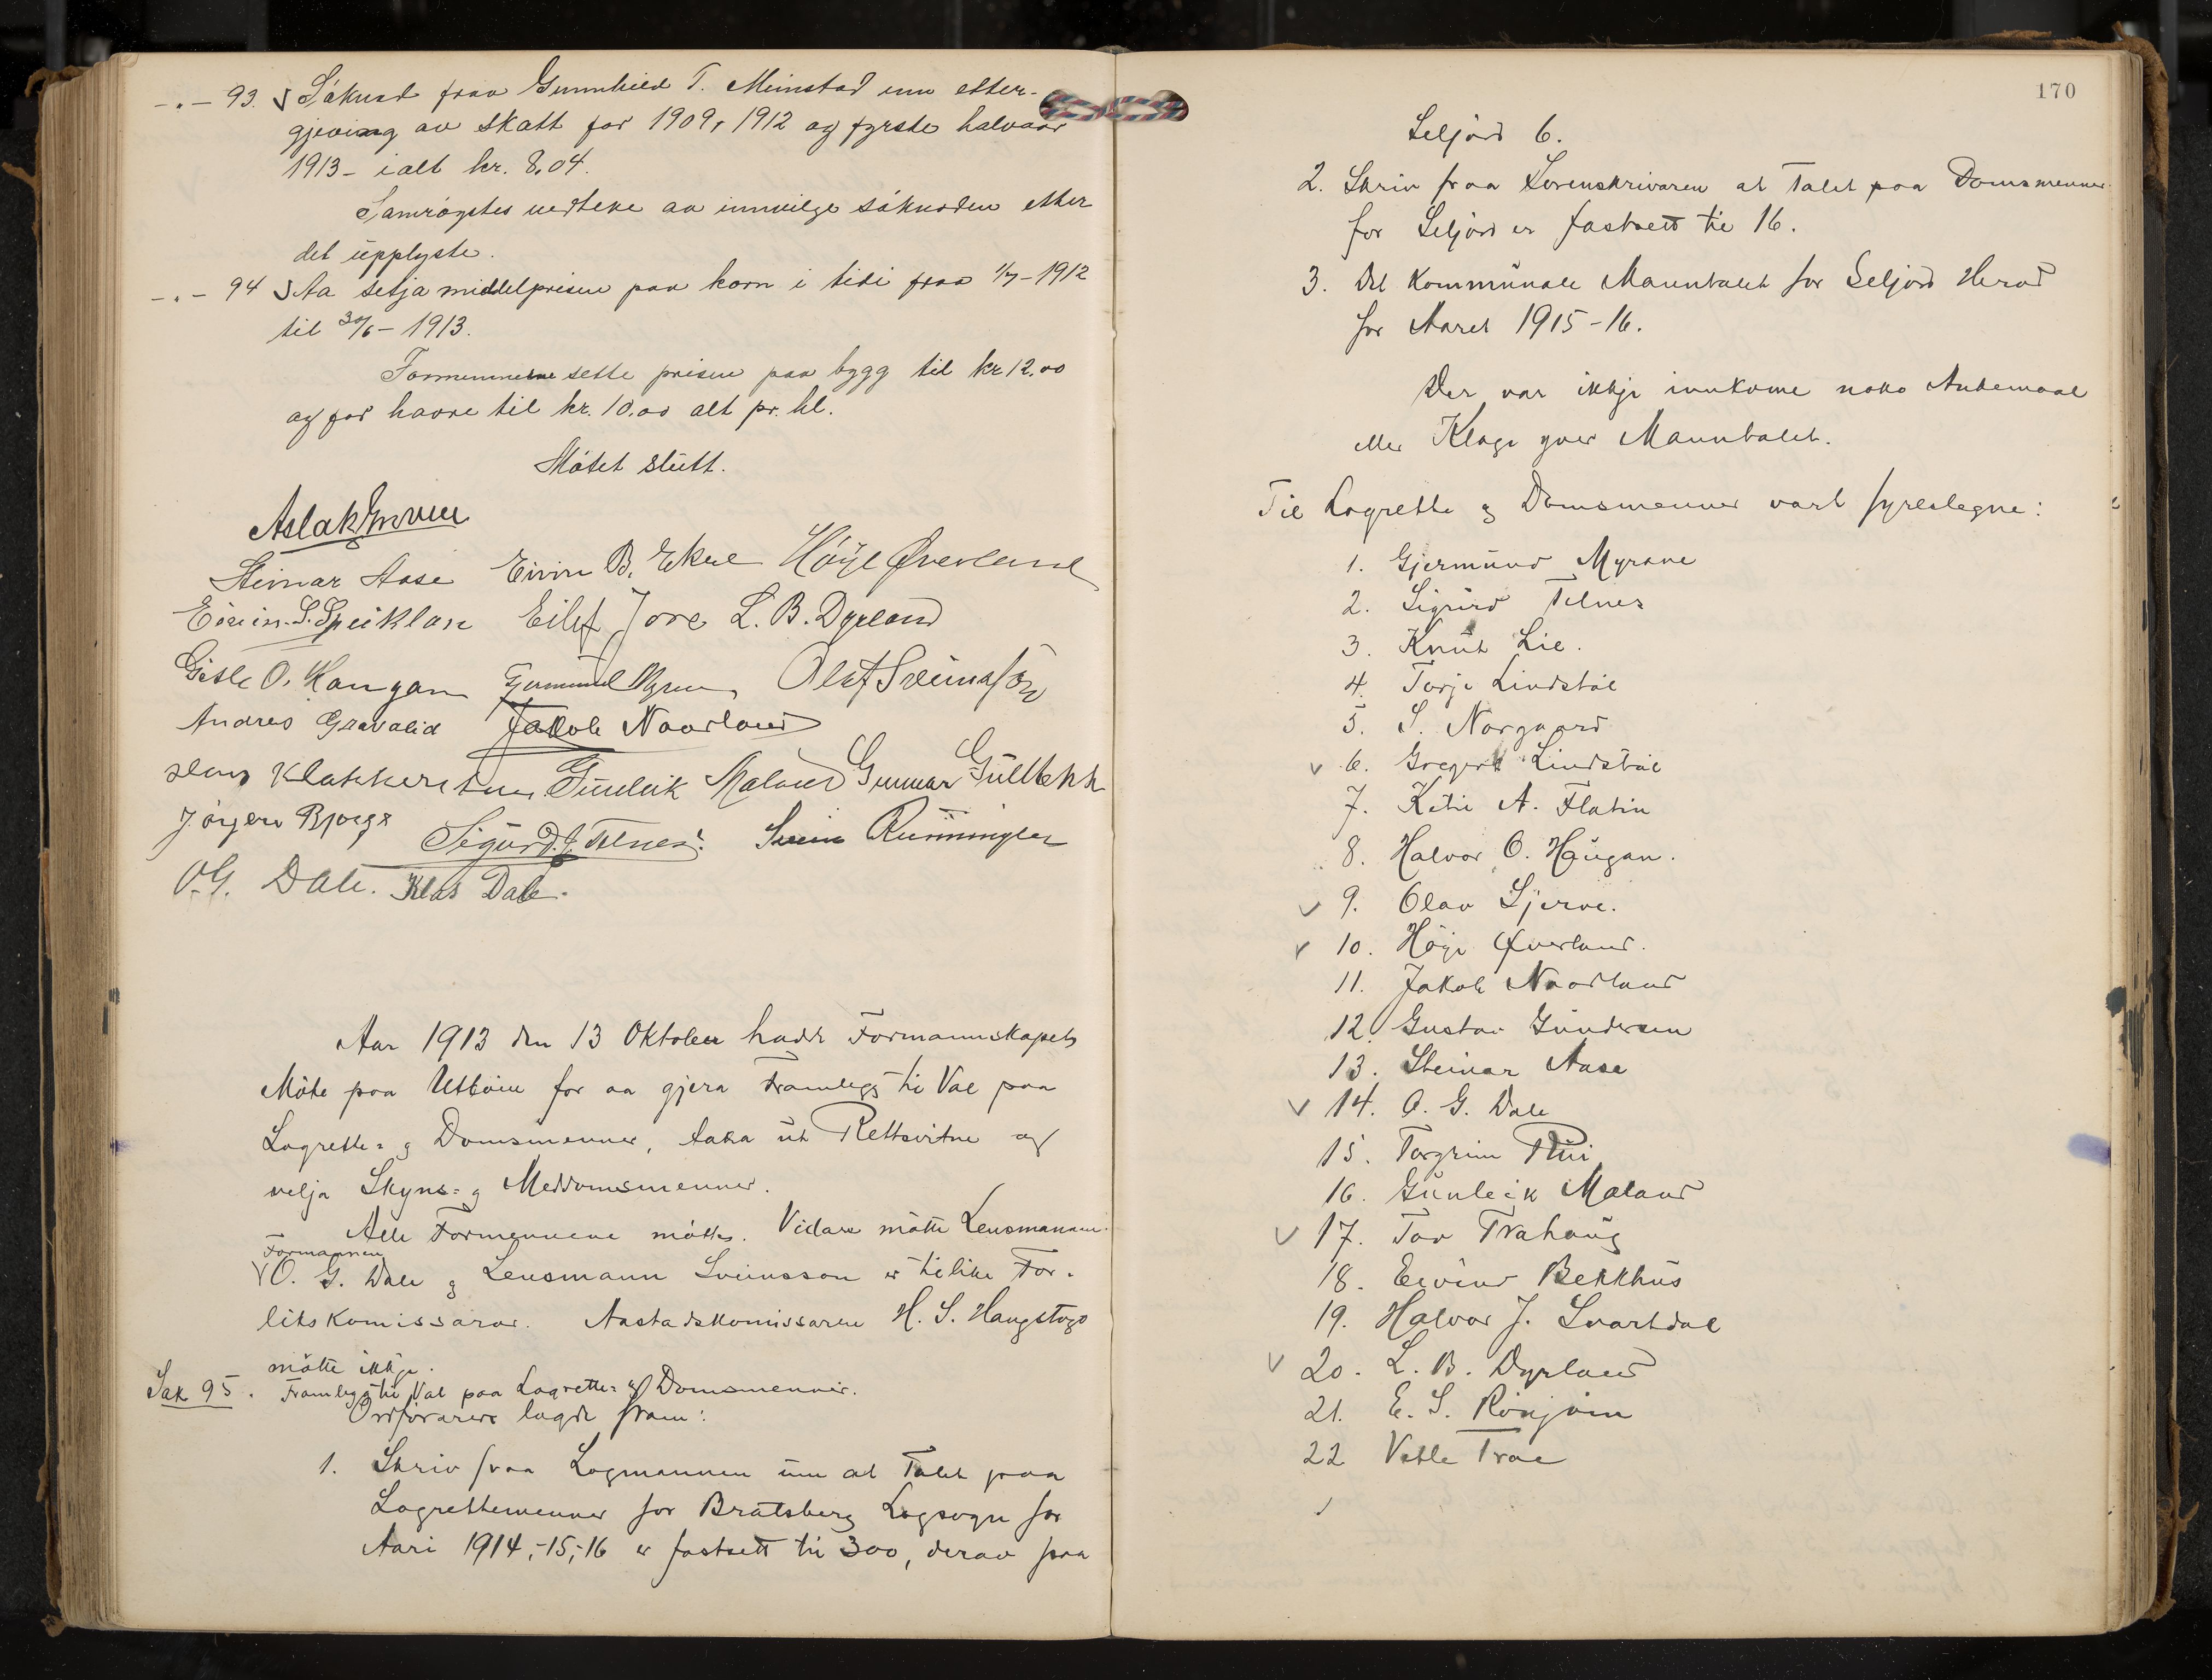 -"- 93. Søknad fraa Gunnhild T. Minstad um etter-
gjeving av skatt for 1909, 1912 og fyrste halvaar
1913 - ialt kr. 8,04.
Samrøystes vedteke av innvilge søknaden etter
det upplyste.
-"- 94 Aa setja middelprisen paa korn i tidi fraa 1/7-1912
til 30/6-1913.
Formennerne sette prisen paa bygg til kr 12.00
og for havre til kr. 10.00 alt pr. hl.
Møtet slutt.
Aslak
Steinar Aase Eivin B. Høye Øverland
Eivin S. Speiklan Eilef Jore L. B. Dyrland
Gisle O. Haugan Olaf Sveinsson
Andres Gravalid Jakob Naardland
Klakkerstun Gunleik Maland Gunnar Gullbekk
Jørgen Bjorge Sigurd J. Telnes Svein Runningen
O.G. Dale. Klas Dale.
Aar 1913 den 13 Oktober hadde Formannskapet
Møte paa Utbøen for aa gjera Framlegg til Val paa
Lagrette= og Domsmenner, taka ut Rettsvitne og
velja Skyns= og Meddomsmenner.
Alle Formennene møtte. Vidare møtte Lensmannen.
Formannen
O. G. Dale og Lensmann Sveinsson er tilike For-
likskomissarar. Aastadskomissaren H. S. Haugstoga
møtte ikkje.
Sak 95. Framlegg til Val paa Lagrette= og Domsmenner.
Ordføraren lagde fram:
1. Skriv fraa Lagmannen um at Talet paa
Lagrettemenner for Bratsberg Lagsogn for
Aari 1914,-15,-16 er fastsett til 300, derav fraa
170
Seljord 6.
2. Skriv fraa Sorenskrivaren at Talet paa Domsmenner
for Seljord er fastsett til 16.
3. Det Kommunale Manntalet for Seljord Herad
for Aaret 1915-16.
Der var ikkje innkome noko Ankemaal
eller Klage yver Manntalet.
Til Lagrette og Domsmenner vart fyreslegne:
1. Gjermund Myrane
2. Sigurd Telnes
3. Knut Lie.
4. Torje Lindstøl
5. S. Norgaard
6. Gregert Lindstøl
7. Ketil A. Flatin
8. Halvor O. Haugan.
9. Olav Sjerve.
10. Høye Øverland.
11. Jakob Naardland
12. Gustav Gundersen
13. Steinar Aase
14. O. G. Dale
15. Torgrim Rui
16. Gunleik Maland
17. Tov Trahaug
18. Eivind Bekkhus
19. Halvor J. Svartdal
20. L. B. Dyrland
21. E. S. Rønjom
22 Vetle Trae